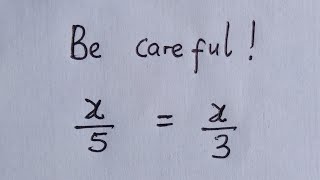 Be careful!
x/5 = x/3